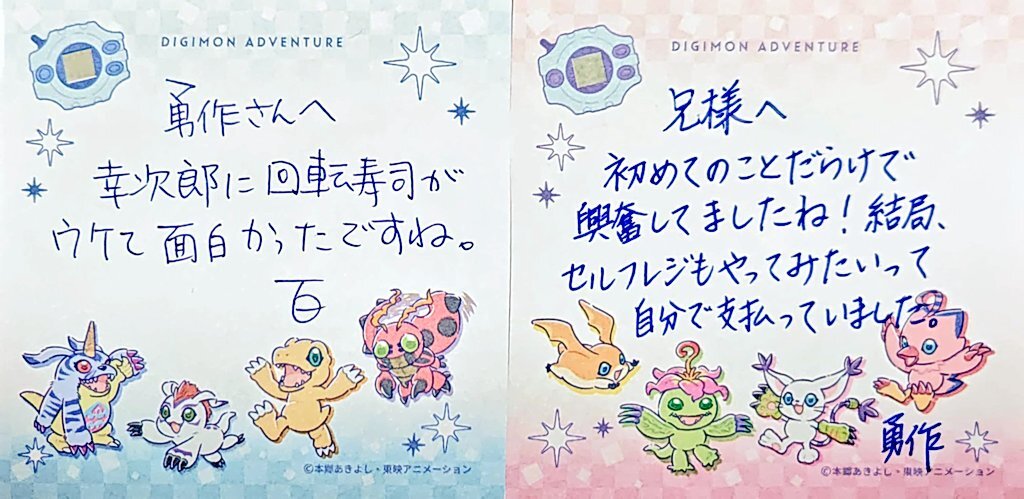 DIGIMON ADVENTURE
勇作さんへ
幸次郎に回転寿司が
ウケて面白かったですね。
百
©本郷あきよし・東映アニメーション
DIGIMON ADVENTURE
兄様へ
初めてのことだらけで
興奮してましたね！結局、
セルフレジもやってみたいって
自分で支払っていました。
勇作
©本郷あきよし・東映アニメーション